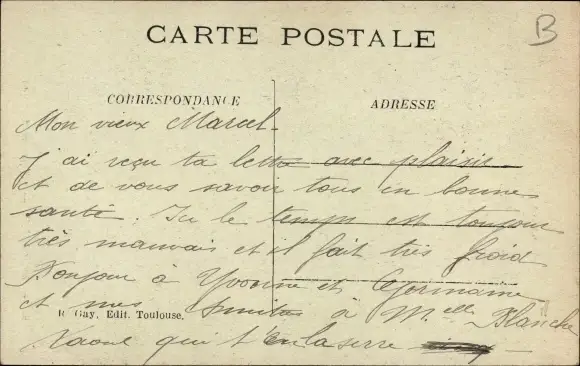 B
CARTE POSTALE
CORRESPONDANCE
ADRESSE
Mon vieux Marcel.
J'ai reçu ta lettre avec plaisir
et de vous savoir tous en bonne
santé. Ici le temps est toujours
très mauvais et il fait très froid
Bonjour à Yvonne et Germaine
et mes à Melle Blanche
Gay, Edit. Toulouse.
Raoul qui t'